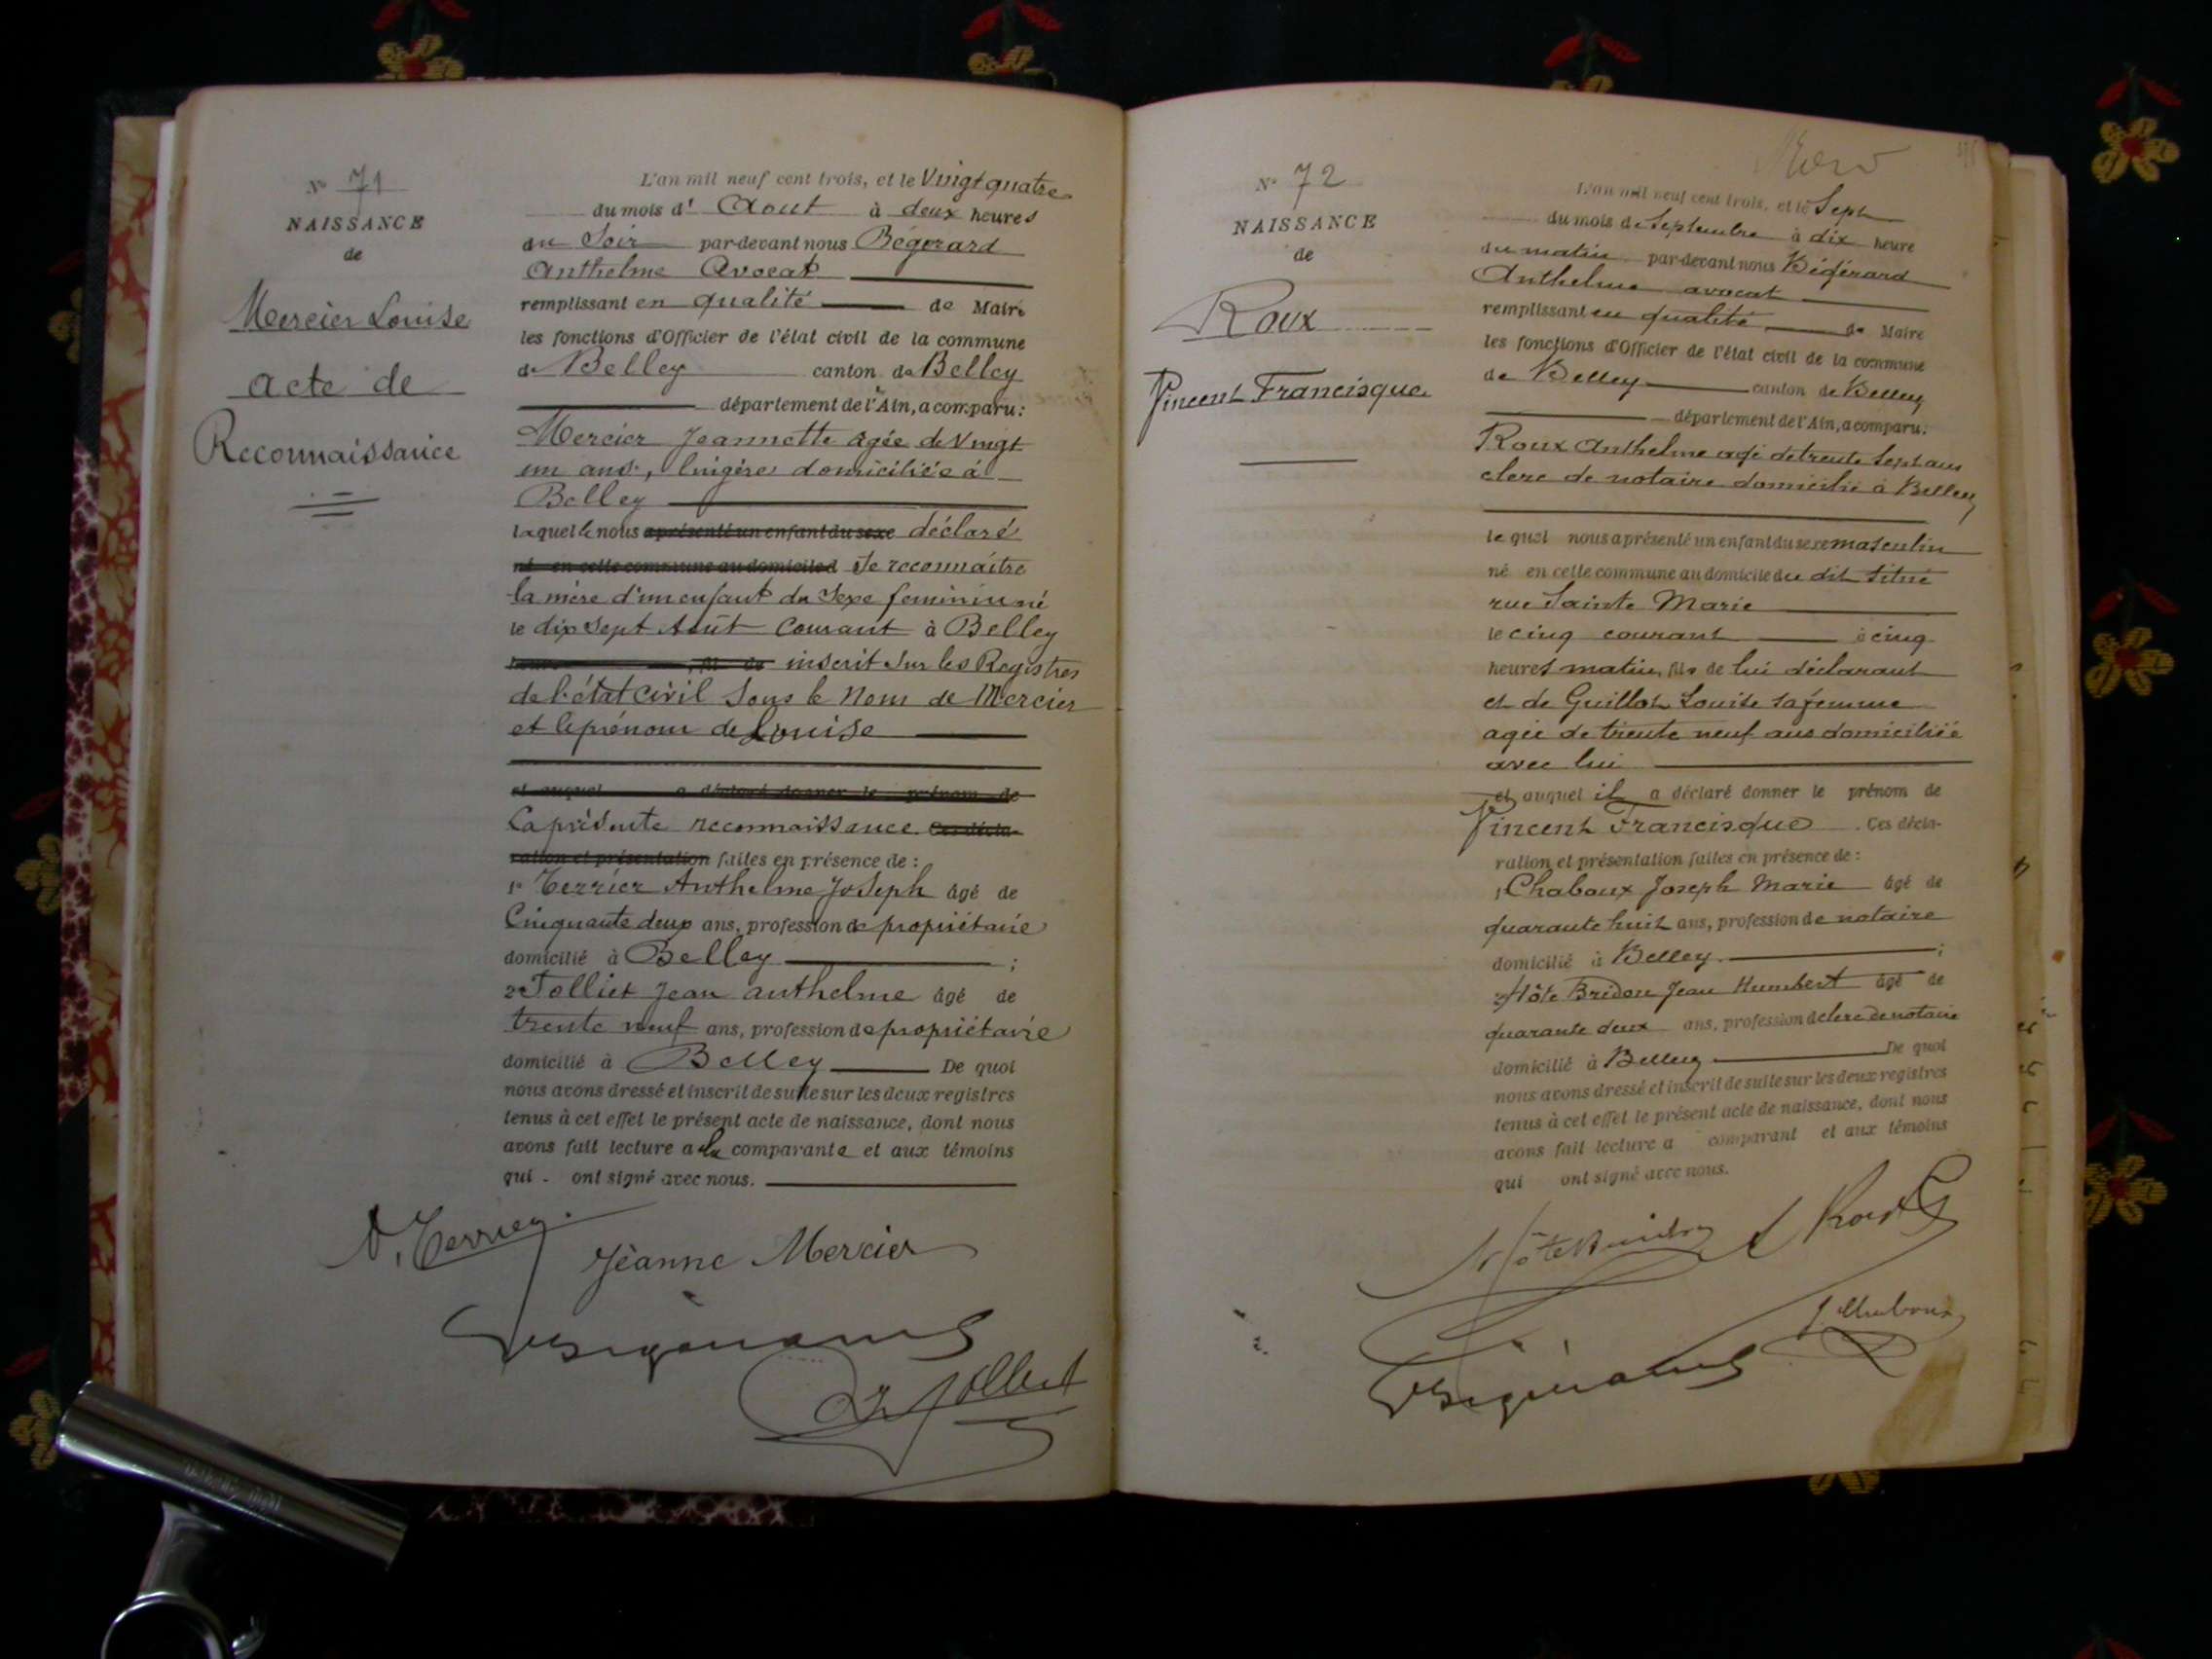 N° 71
NAISSANCE
de
Mercier Louise
acte de
Reconnaissance
L'an mil neuf cent trois, et le Vingt quatre
du mois d' Aout à deux heures
du Soir par-devant nous Bégerard
Anthelme Avocat
remplissant en qualité de Maire
les fonctions d'Officier de l'état civil de la commune
de Belley canton de Belley
département de l'Ain, a comparu:
Mercier Jeannette agée de Vingt
un ans, lingère domiciliée à
Belley
laquelle nous a présenté un enfant du sexe déclaré
né en cette commune au domicile d Se reconnaitre
la mère d'un enfant du Sexe feminin né
le dix Sept Août Courant à Belley
inscrit Sur les Registres
de l'état Civil Sous le Nom de Mercier
et le prénom de Louise
et auquel a déclaré donner le prénom de
La présente reconnaissance. Ces décla-
ration et présentation faites en présence de :
1° Terrier Anthelme Joseph âgé de
Cinquante deux ans, profession de propriétaire
domicilié à Belley ;
2° Tolliet Jean anthelme âgé de
trente neuf ans, profession de propriétaire
domicilié à Belley De quoi
nous avons dressé et inscrit de suite sur les deux registres
tenus à cet effet le présent acte de naissance, dont nous
avons fait lecture a la comparante et aux témoins
qui ont signé avec nous.
A. Terrier
Jeanne Mercier
Tolliet
N° 72
NAISSANCE
de
Roux
Vincent Francisque
L'an mil neuf cent trois, et le Sept
du mois de Septembre à dix heure
du matin par-devant nous Bégérard
Anthelme avocat
remplissant en qualité de Maire
les fonctions d'Officier de l'état civil de la commune
de Belley canton de Belley
département de l'Ain, a comparu:
Roux Anthelme agé de trente Sept ans
clerc de notaire domicilié à Belley
le quel nous a présenté un enfant du sexe masculin
né en cette commune au domicile du dit Situé
rue Sainte Marie
le cinq courant à cinq
heures matin, fils de lui déclarant
et de Guillot Louise sa femme
agée de trente neuf ans domiciliée
avec lui
et auquel il a déclaré donner le prénom de
Vincent Francisque . Ces décla-
ration et présentation faites en présence de :
1 Chaboux Joseph Marie âgé de
quarante huit ans, profession de notaire
domicilié à Belley ;
2 Hôte Bridon Jean Humbert âgé de
quarante deux ans, profession de clerc de notaire
domicilié à Belley De quoi
nous avons dressé et inscrit de suite sur les deux registres
tenus à cet effet le présent acte de naissance, dont nous
avons fait lecture a comparant et aux témoins
qui ont signé avec nous.
Hôte Bridon
A Roux
J Chaboux